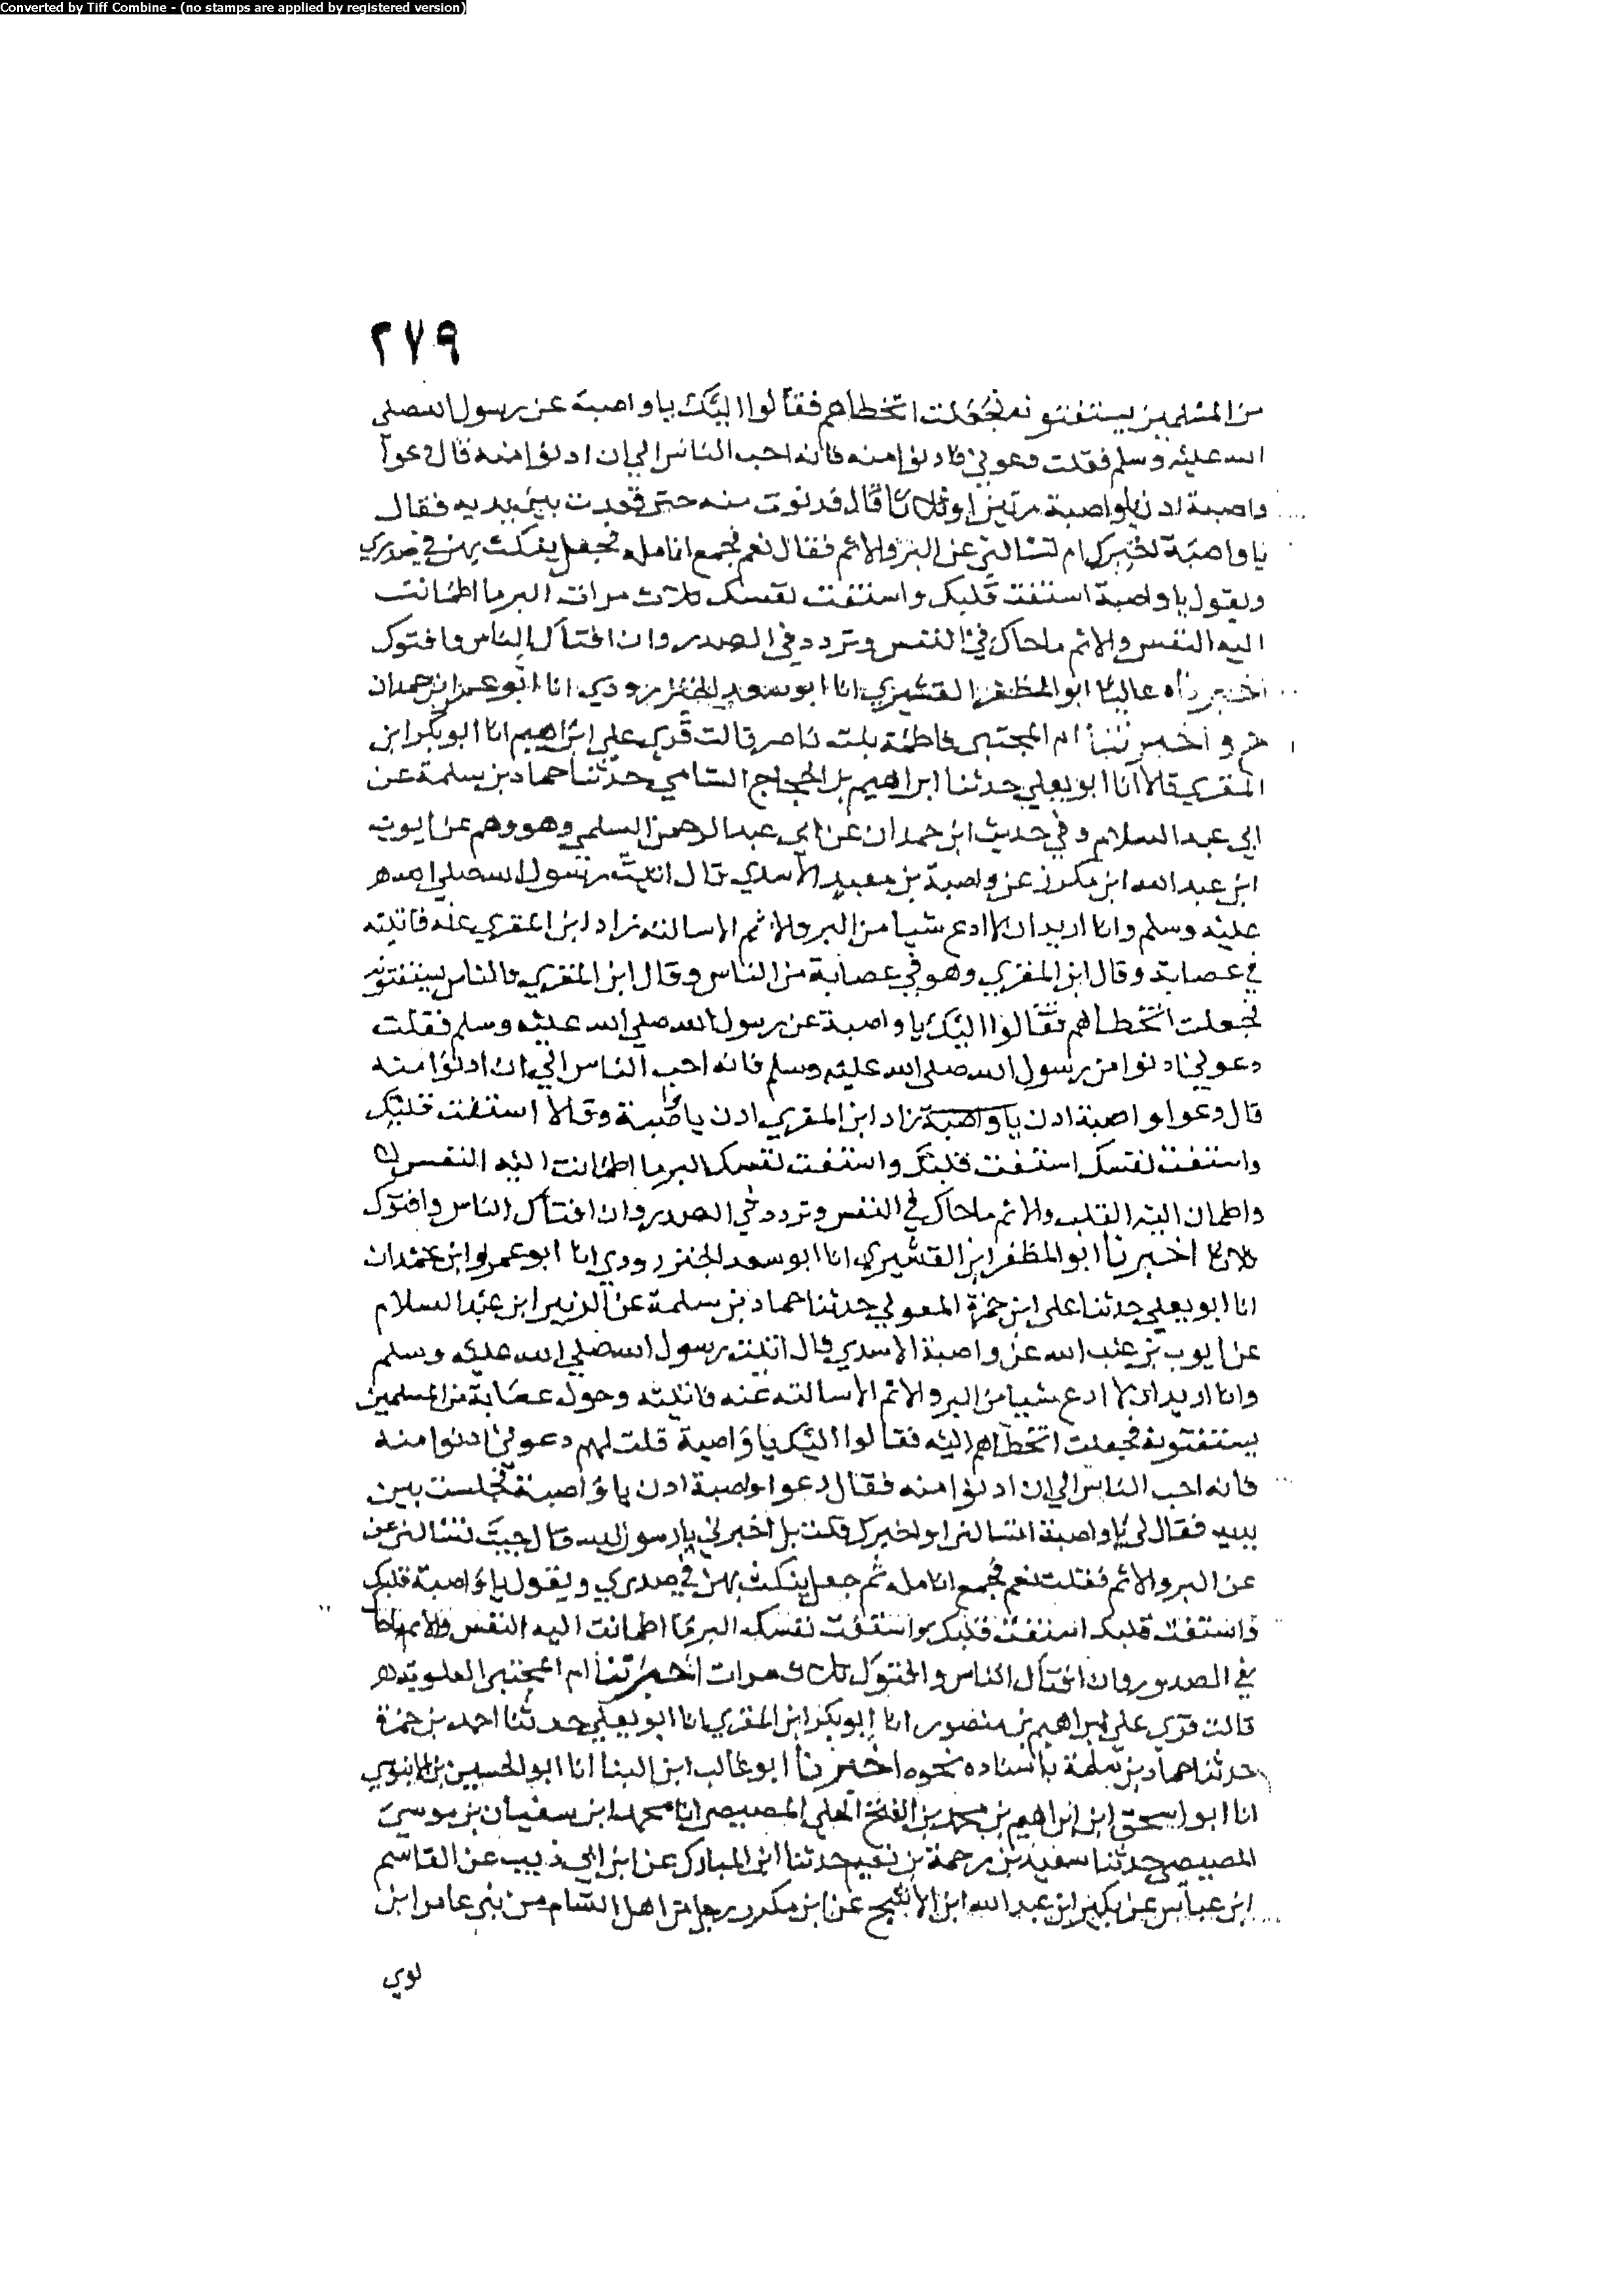 Converted by Tiff Combine - (no stamps are applied by registered version)
٢٧٩
من المسلمين يستفتونه فجعلت اتخطاهم فقالوا اليك يا واصبة عن رسول الله صلى
الله عليه وسلم فقلت دعوني فادنوا منه فانه احب الناس الي ان ادنوا منه قال دعوا
واصبة ادن يا واصبة مرتين او ثلاثا قال فدنوت منه حتى قعدت بين يديه فقال
يا واصبة اخبرك ام تسالني عن البر والاثم فقال نعم فجمع انامله فجعل ينكث بهن في صدري
ويقول يا واصبة استفت قلبك واستفت نفسك ثلاث مرات البر ما اطمانت
اليه النفس والاثم ما حاك في النفس وتردد في الصدر وان افتاك الناس وافتوك
اخبرناه عاليا ابو المظفر القشيري انا ابو سعد الجنزرودي انا ابو عمر ابن حمدان
ح واخبرتنا ام المجتبى فاطمة بنت ناصر قالت قري على ابراهيم انا ابو بكر ابن
المقري قالا انا ابو يعلي حدثنا ابراهيم بن الحجاج السامي حدثنا حماد بن سلمة عن
ابي عبد السلام وفي حديث ابن حمدان عن ابي عبد الرحمن السلمي وهو وهم عن ايوب
ابن عبد الله ابن مكرز عن واصبة بن معبد الاسدي قال اتيت رسول الله صلى الله
عليه وسلم وانا اريد ان لا ادع شيا من البر والاثم الا سالته زاد ابن المقري عنه فاتيته
في عصابة وقال ابن المقري وهو في عصابة من الناس وقال ابن المقري والناس يستفتونه
فجعلت اتخطاهم فقالوا اليك يا واصبة عن رسول الله صلى الله عليه وسلم فقلت
دعوني ادنوا من رسول الله صلى الله عليه وسلم فانه احب الناس الي ان ادنوا منه
قال دعوا واصبة ادن يا واصبة زاد ابن المقري ادن يا واصبة وقالا استفت قلبك
واستفت نفسك استفت قلبك واستفت نفسك البر ما اطمانت اليه النفس
واطمان اليه القلب والاثم ما حاك في النفس وتردد في الصدر وان افتاك الناس وافتوك
ثلاثا اخبرنا ابو المظفر ابن القشيري انا ابو سعد الجنزرودي انا ابو عمرو ابن حمدان
انا ابو يعلي حدثنا على ابن حمزة المعولي حدثنا حماد بن سلمة عن الزبير ابن عبد السلام
عن ايوب بن عبد الله عن واصبة الاسدي قال اتيت رسول الله صلى الله عليه وسلم
وانا اريد ان لا ادع شيا من البر والاثم الا سالته عنه فاتيته وحوله عصابة من المسلمين
يستفتونه فجعلت اتخطاهم اليه فقالوا اليك يا واصبة قلت لهم دعوني ادنوا منه
فانه احب الناس الي ان ادنوا منه فقال دعوا واصبة ادن يا واصبة فجلست بين
يديه فقال لي يا واصبة اتسالني او اخبرك فقلت بل اخبرني يا رسول الله قال جيت تسالني عن
عن البر والاثم فقلت نعم فجمع انامله ثم جعل ينكث بهن في صدري ويقول يا واصبة قلبك
واستفت قلبك استفت قلبك واستفت نفسك البر ما اطمانت اليه النفس والاثم ما حاك
في الصدور وان افتاك الناس وافتوك ثلاث مرات اخبرتنا ام المجتبى العلوية
قالت قري على ابراهيم بن منصور انا ابو بكر ابن المقري انا ابو يعلي حدثنا احمد بن حمزة
حدثنا حماد بن سلمة باسناده نحوه اخبرنا ابو غالب ابن البنا انا ابو الحسين بن الابنوسي
انا ابو اسحق ابن ابراهيم بن محمد بن الفتح الحلي المصيصي انا محمد ابن سفيان بن موسى
المصيصي حدثنا سعيد بن رحمة بن نعيم حدثنا ابن المبارك عن ابن ابي ذيب عن القاسم
ابن عباس عن بكير ابن عبد الله ابن الاشج عن ابن مكرز رجل من اهل الشام من بني عامر ابن
لوي